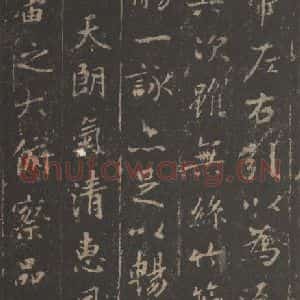 帶左右引以為流
其次雖無絲竹管
觴一詠亦足以暢
天朗氣清惠風
宙之大俯察品
Shufawang.CN